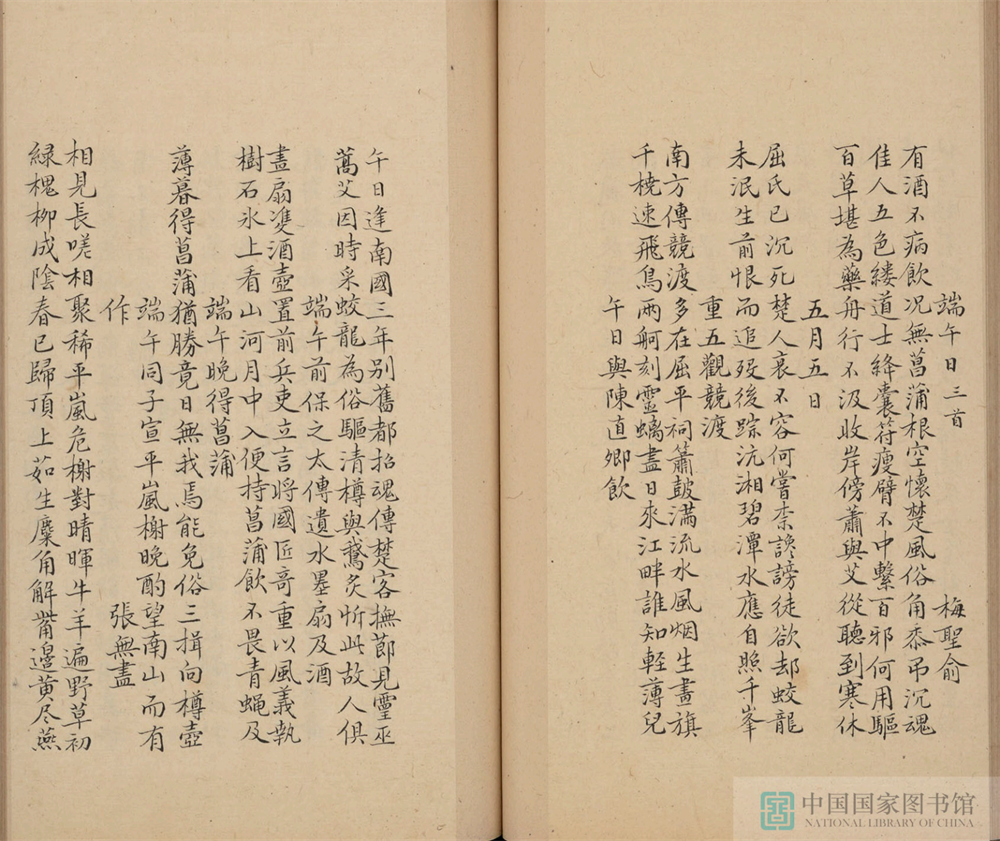 端午日三首　梅聖俞
有酒不病飲况無菖蒲根空懷楚風俗角黍弔沉魂
佳人五色縷道士絳囊符瘦臂不中繫百邪何用驅
百草堪為藥舟行不汲收岸傍蕭與艾從聽到寒休
五月五日
屈氏已沉死楚人哀不容何嘗柰讒謗徒欲却蛟龍
未泯生前恨而追歿後踪沅湘碧潭水應自照千峯
重五觀競渡
南方傳競渡多在屈平祠簫皷滿流水風烟生畫旗
千橈速飛鳥兩舸刻靈螭盡日來江畔誰知輕薄兒
午日與陳直卿飲
午日逢南國三年别舊都招魂傳楚客撫節見靈巫
蒿艾因時采蛟龍為俗驅清樽與鵞炙忻此故人俱
端午前保之太傳遺水墨扇及酒
畫扇雙酒壺置前兵吏立言將國匠哥重以風義執
樹石氷上看山河月中入便持菖蒲飲不畏青蝇及
端午晚得菖蒲
薄暮得菖蒲猶勝竟日無我焉能免俗三揖向樽壺
端午同子宣平嵐榭晚酌望南山而有
作　張無盡
相見長嗟相聚稀平嵐危榭對晴暉牛羊遍野草初
緑槐柳成陰春已歸頂上茹生麋角解觜邊黄尽燕
中国国家图书馆
NATIONAL LIBRARY OF CHINA